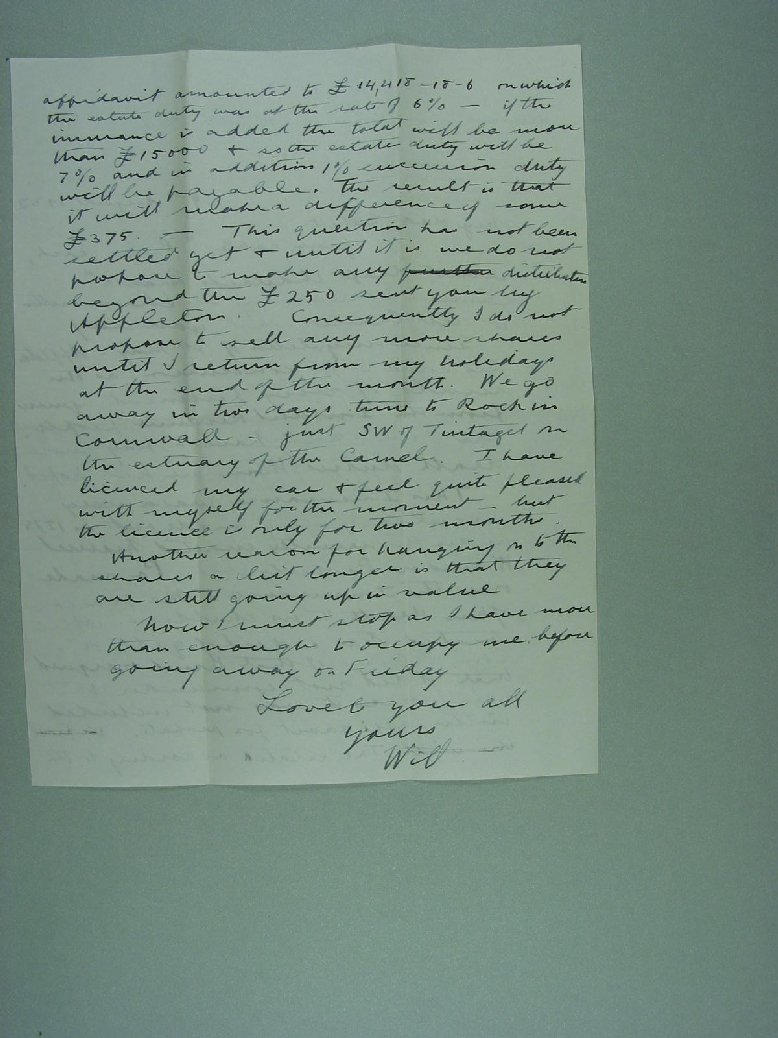 affidavit amounted to £14,418-18-6 on which
the estate duty was at the rate of 6% — if the
insurance is added the total will be more
than £15000 & so the estate duty will be
7% and in addition 1% succession duty
will be payable. The result is that
it will make a difference of some
£375. — This question has not been
settled yet & until it is we do not
propose to make any further distribution
beyond the £250 sent you by
Appleton. Consequently I do not
propose to sell any more shares
until I return from my holidays
at the end of the month. We go
away in two days time to Rock in
Cornwall - just SW of Tintagel on
the estuary of the Camel. I have
licenced my car & feel quite pleased
with myself for the moment - but
the licence is only for two months.
Another reason for hanging on to the
shares a bit longer is that they
are still going up in value
Now I must stop as I have more
than enough to occupy me before
going away on Friday
Love to you all
yours
Will